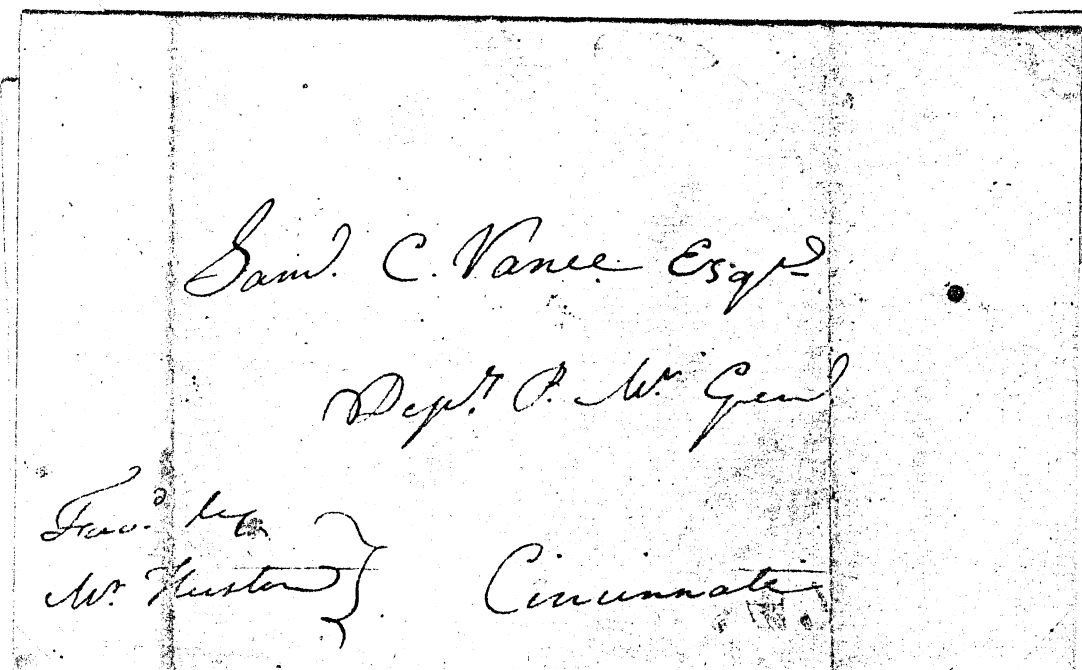 Saml. C. Vance Esqr.
Depy. P. Mr. Genl
Favd. by
Mr. Huston } Cincinnati